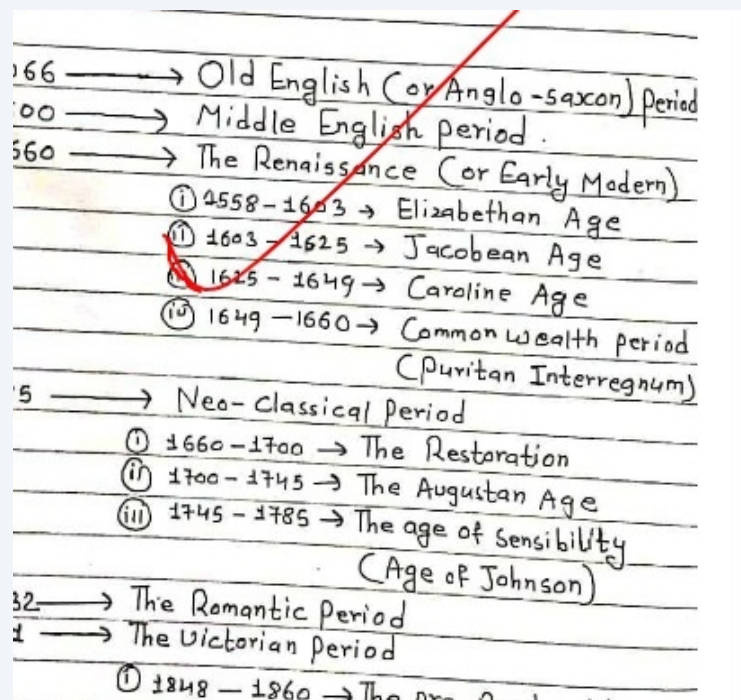 066 → Old English (or Anglo-saxon) period
00 → Middle English period.
660 → The Renaissance (or Early Modern)
(i) 1558-1603 → Elizabethan Age
(ii) 1603-1625 → Jacobean Age
(iii) 1625-1649 → Caroline Age
(iv) 1649-1660 → Common wealth period
(Puritan Interregnum)
5 → Neo-Classical Period
(i) 1660-1700 → The Restoration
(ii) 1700-1745 → The Augustan Age
(iii) 1745-1785 → The age of sensibility
(Age of Johnson)
32 → The Romantic Period
1 → The Victorian Period
(i) 1848-1860 → The pre-